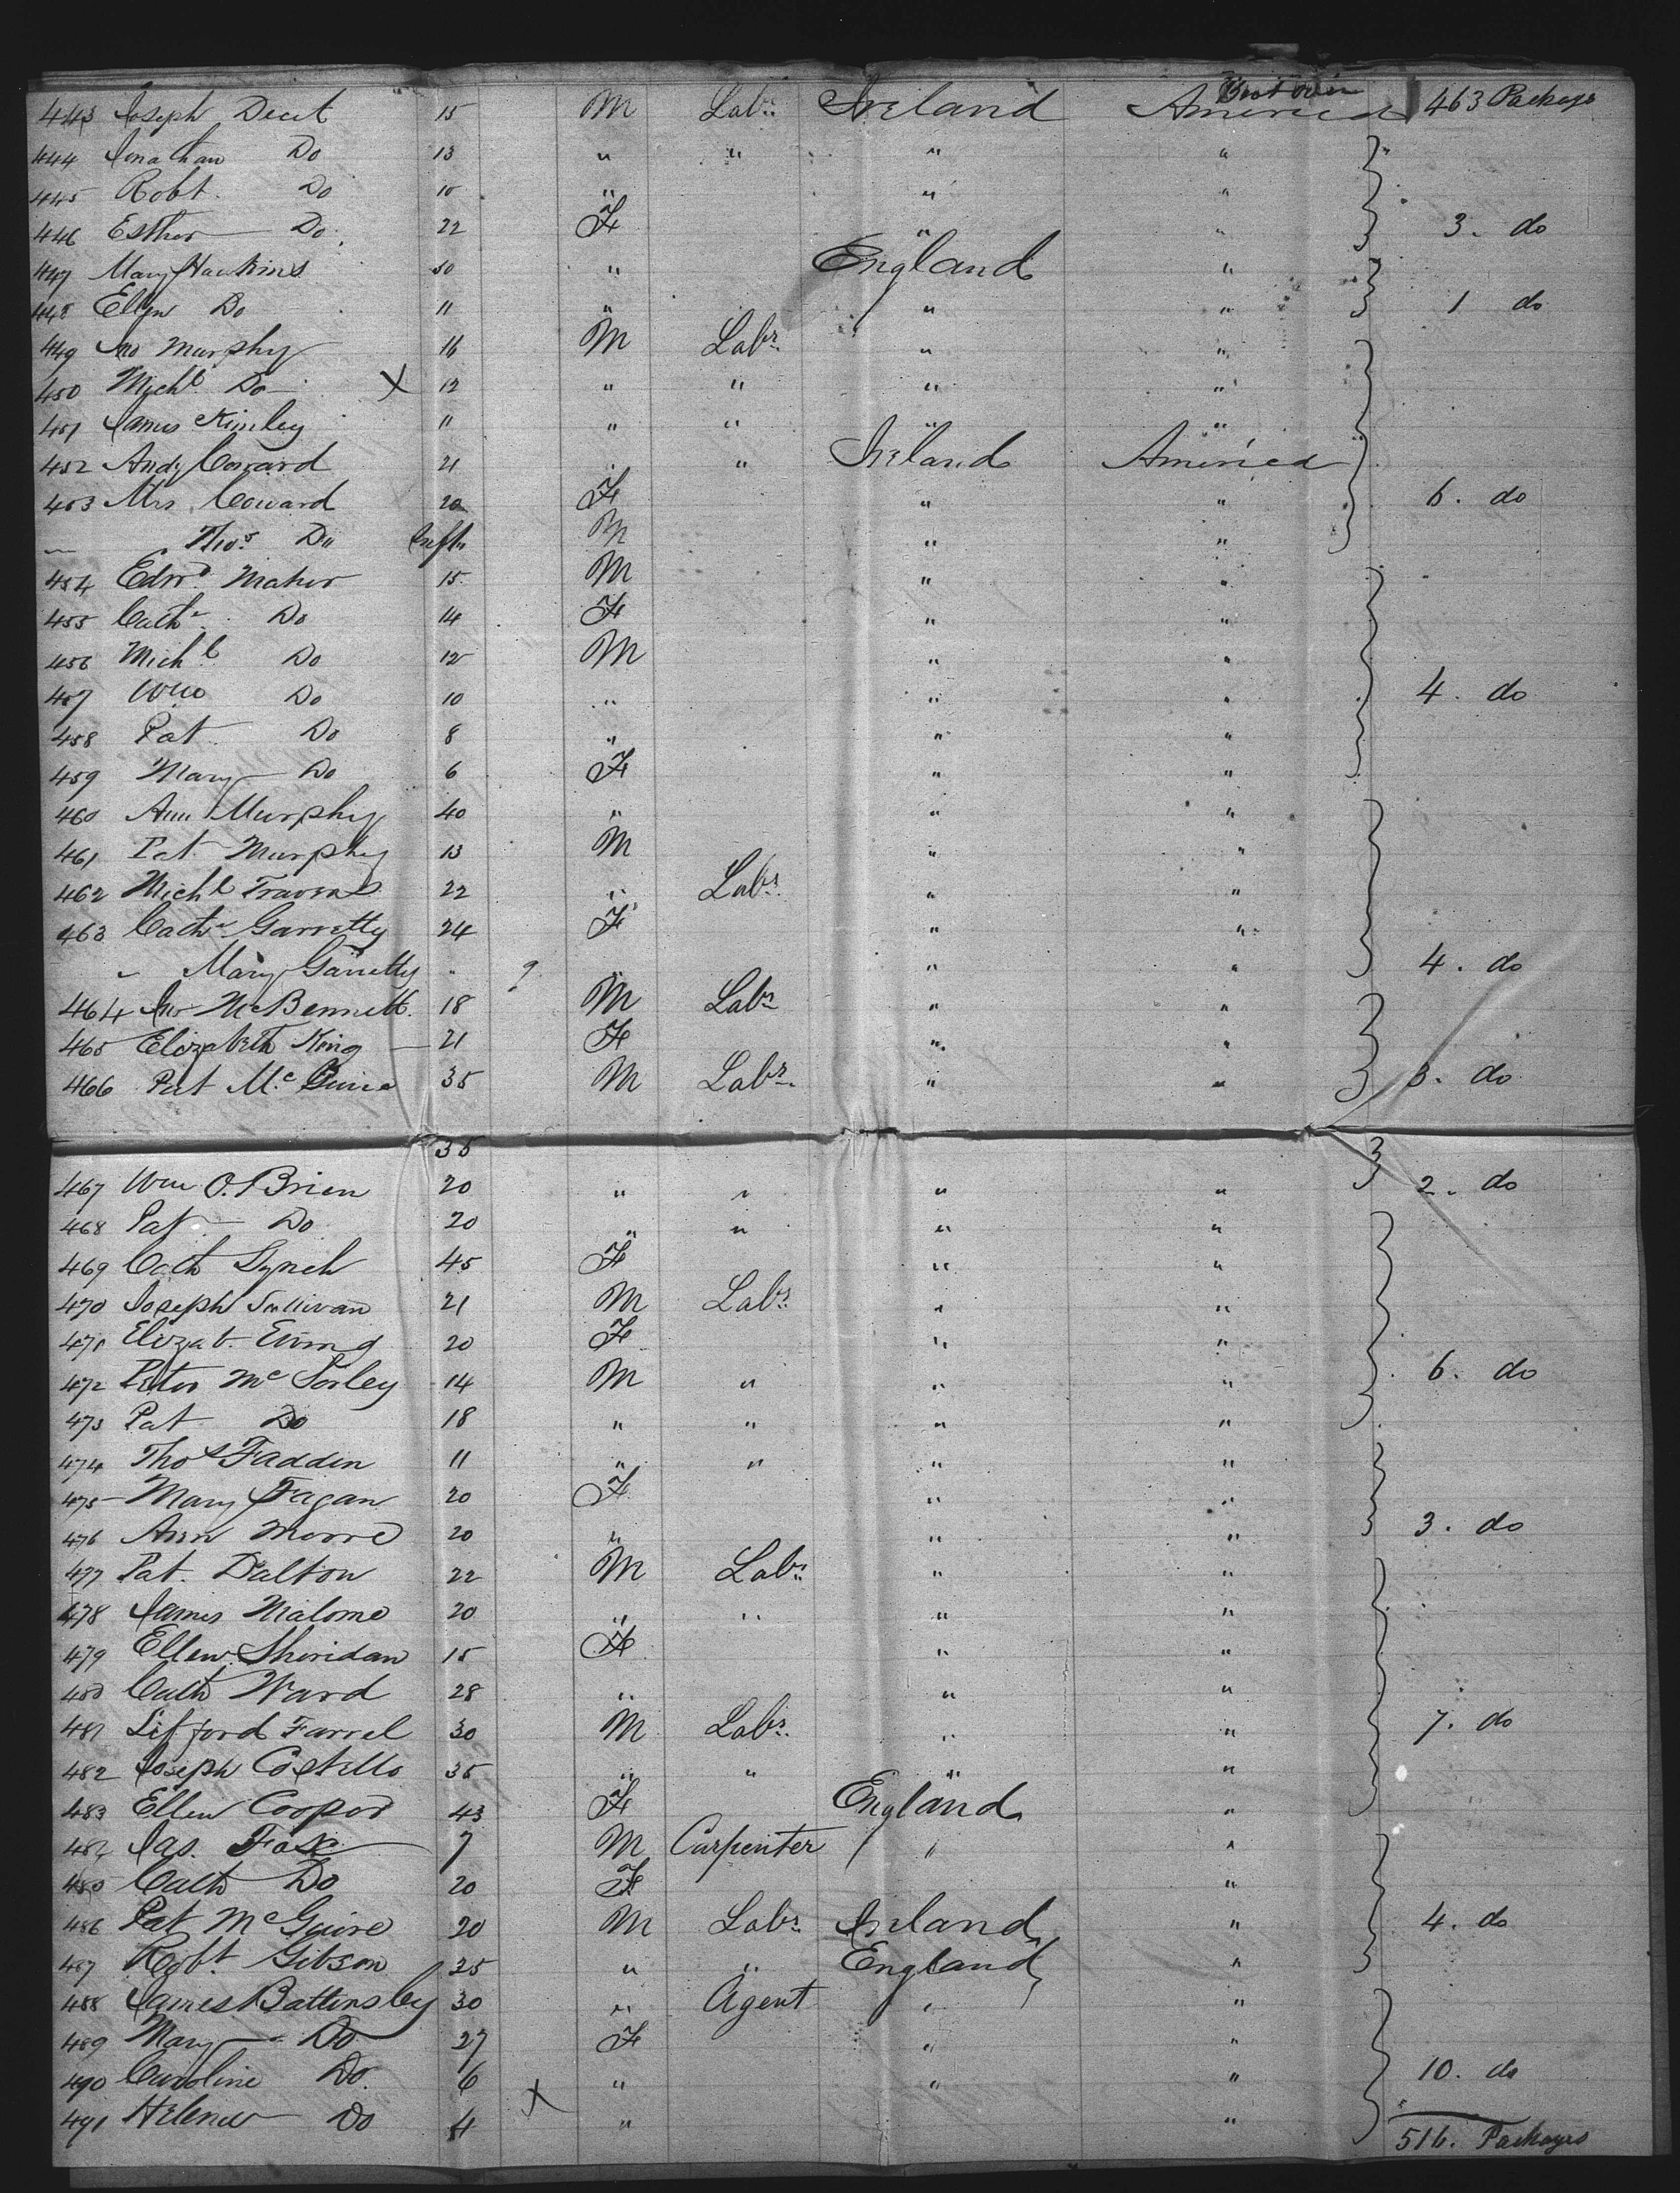 443 Joseph Deut 15 M Labr. Ireland America 463 Packags
444 Jonathan Do 13 " " " "
445 Robt. Do 10 " " "
446 Esther Do. 22 F " " 3. do
447 Mary Hawkins 50 " England "
448 Ellen Do 11 " " " 1 do
449 Jno Murphy 16 M Labr. " "
450 Michl. Do X 12 " " " "
451 James Kimley 11 " " " "
452 Andy Coward 21 " " Ireland America
453 Mrs. Coward 20 F " " 6. do
" Thos. Do Inft. M " "
454 Edwd. Maher 15 M " "
455 Cathe. Do 14 F " "
456 Michl Do 12 M " "
457 Wm Do 10 " " " 4. do
458 Pat Do 8 " " "
459 Mary Do 6 F " "
460 Ann Murphy 40 " " "
461 Pat Murphy 13 M " "
462 Michl Travers 22 " Labr. " "
463 Cathe Garretty 24 F " "
" Mary Garretty " 9 " " " 4. do
464 Jno McBennett. 18 M Labr " "
465 Elizabeth King 21 F " "
466 Pat Mc 35 M Labr. " " 3. do
35
467 Wm O.Brien 20 " " " " 2. do
468 Pat Do 20 " " " "
469 Cath Lynch 45 F " "
470 Joseph Sullivan 21 M Labr. " "
471 Elizab. 20 F " "
472 Peter Mc Sorley 14 M " " " 6. do
473 Pat Do 18 " " " "
474 Thos Faddin 11 " " " "
475 Mary Fagan 20 F " "
476 Ann Moore 20 " " " 3. do
477 Pat. Dalton 22 M Labr. " "
478 James Malone 20 " " " "
479 Ellen Sheridan 15 F " "
480 Cath Ward 28 " " "
481 Lifford Farrel 30 M Labr. " " 7. do
482 Joseph Costello 35 " " " "
483 Ellen Cooper 43 F England "
484 Jas. Fox 7 M Carpenter " "
485 Cath Do 20 F "
486 Pat McGuire 20 M Labr. Ireland " 4. do
487 Robt. Gibson 25 " " England "
488 James Battersley 30 " Agent " "
489 Mary Do 27 F " "
490 Caroline Do 6 " " " 10. do
491 Helenew Do 4 X " "
516. Packages